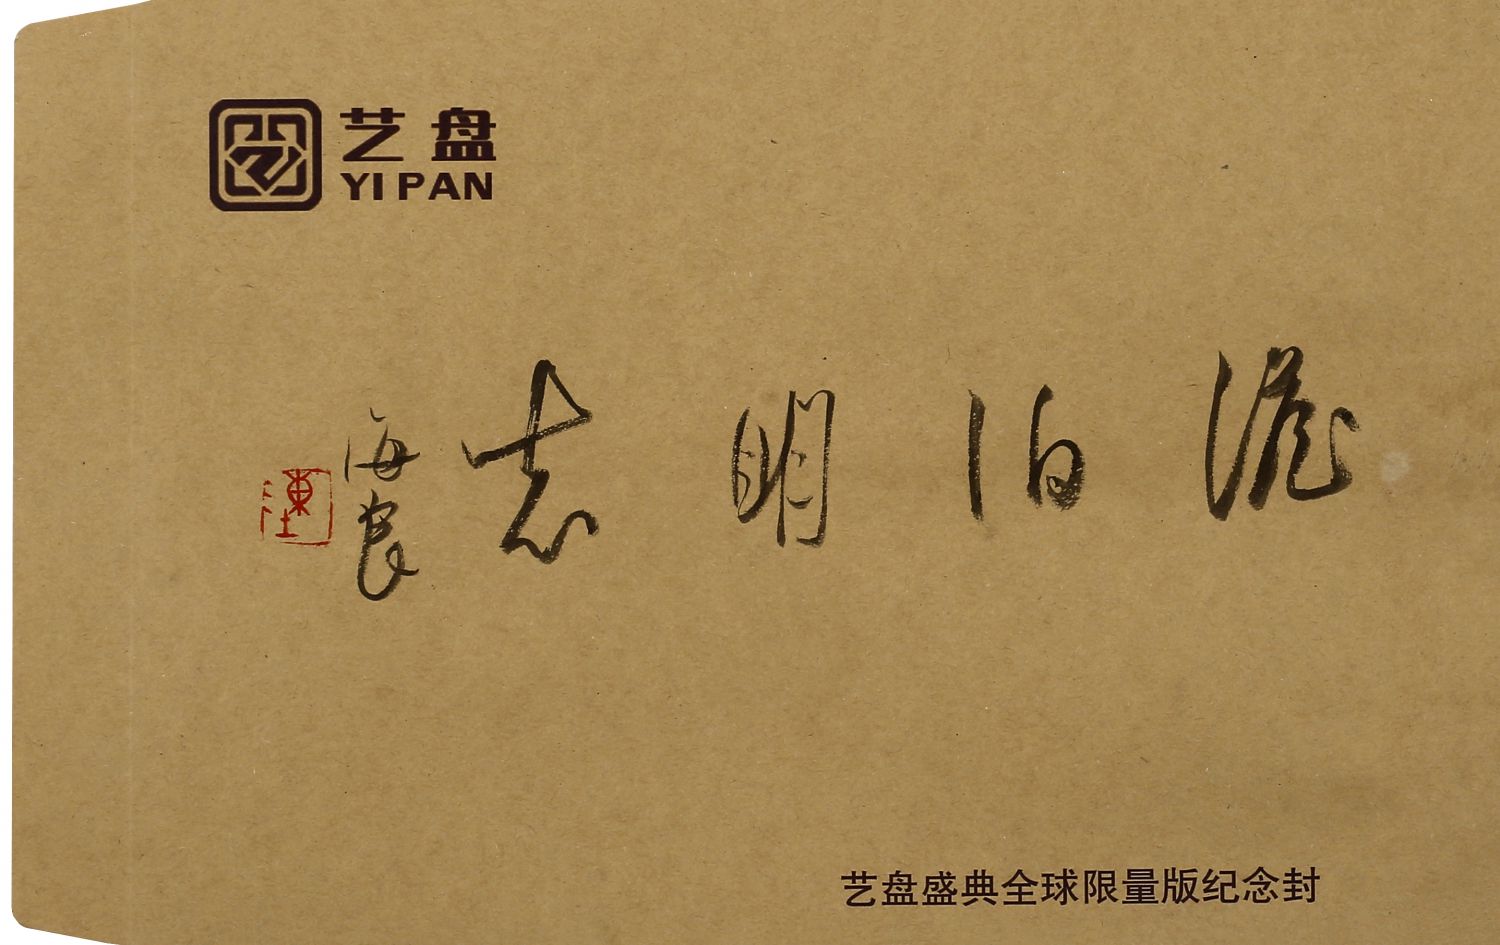 艺盘
YI PAN
澹泊明志
海良
陳
艺盘盛典全球限量版纪念封